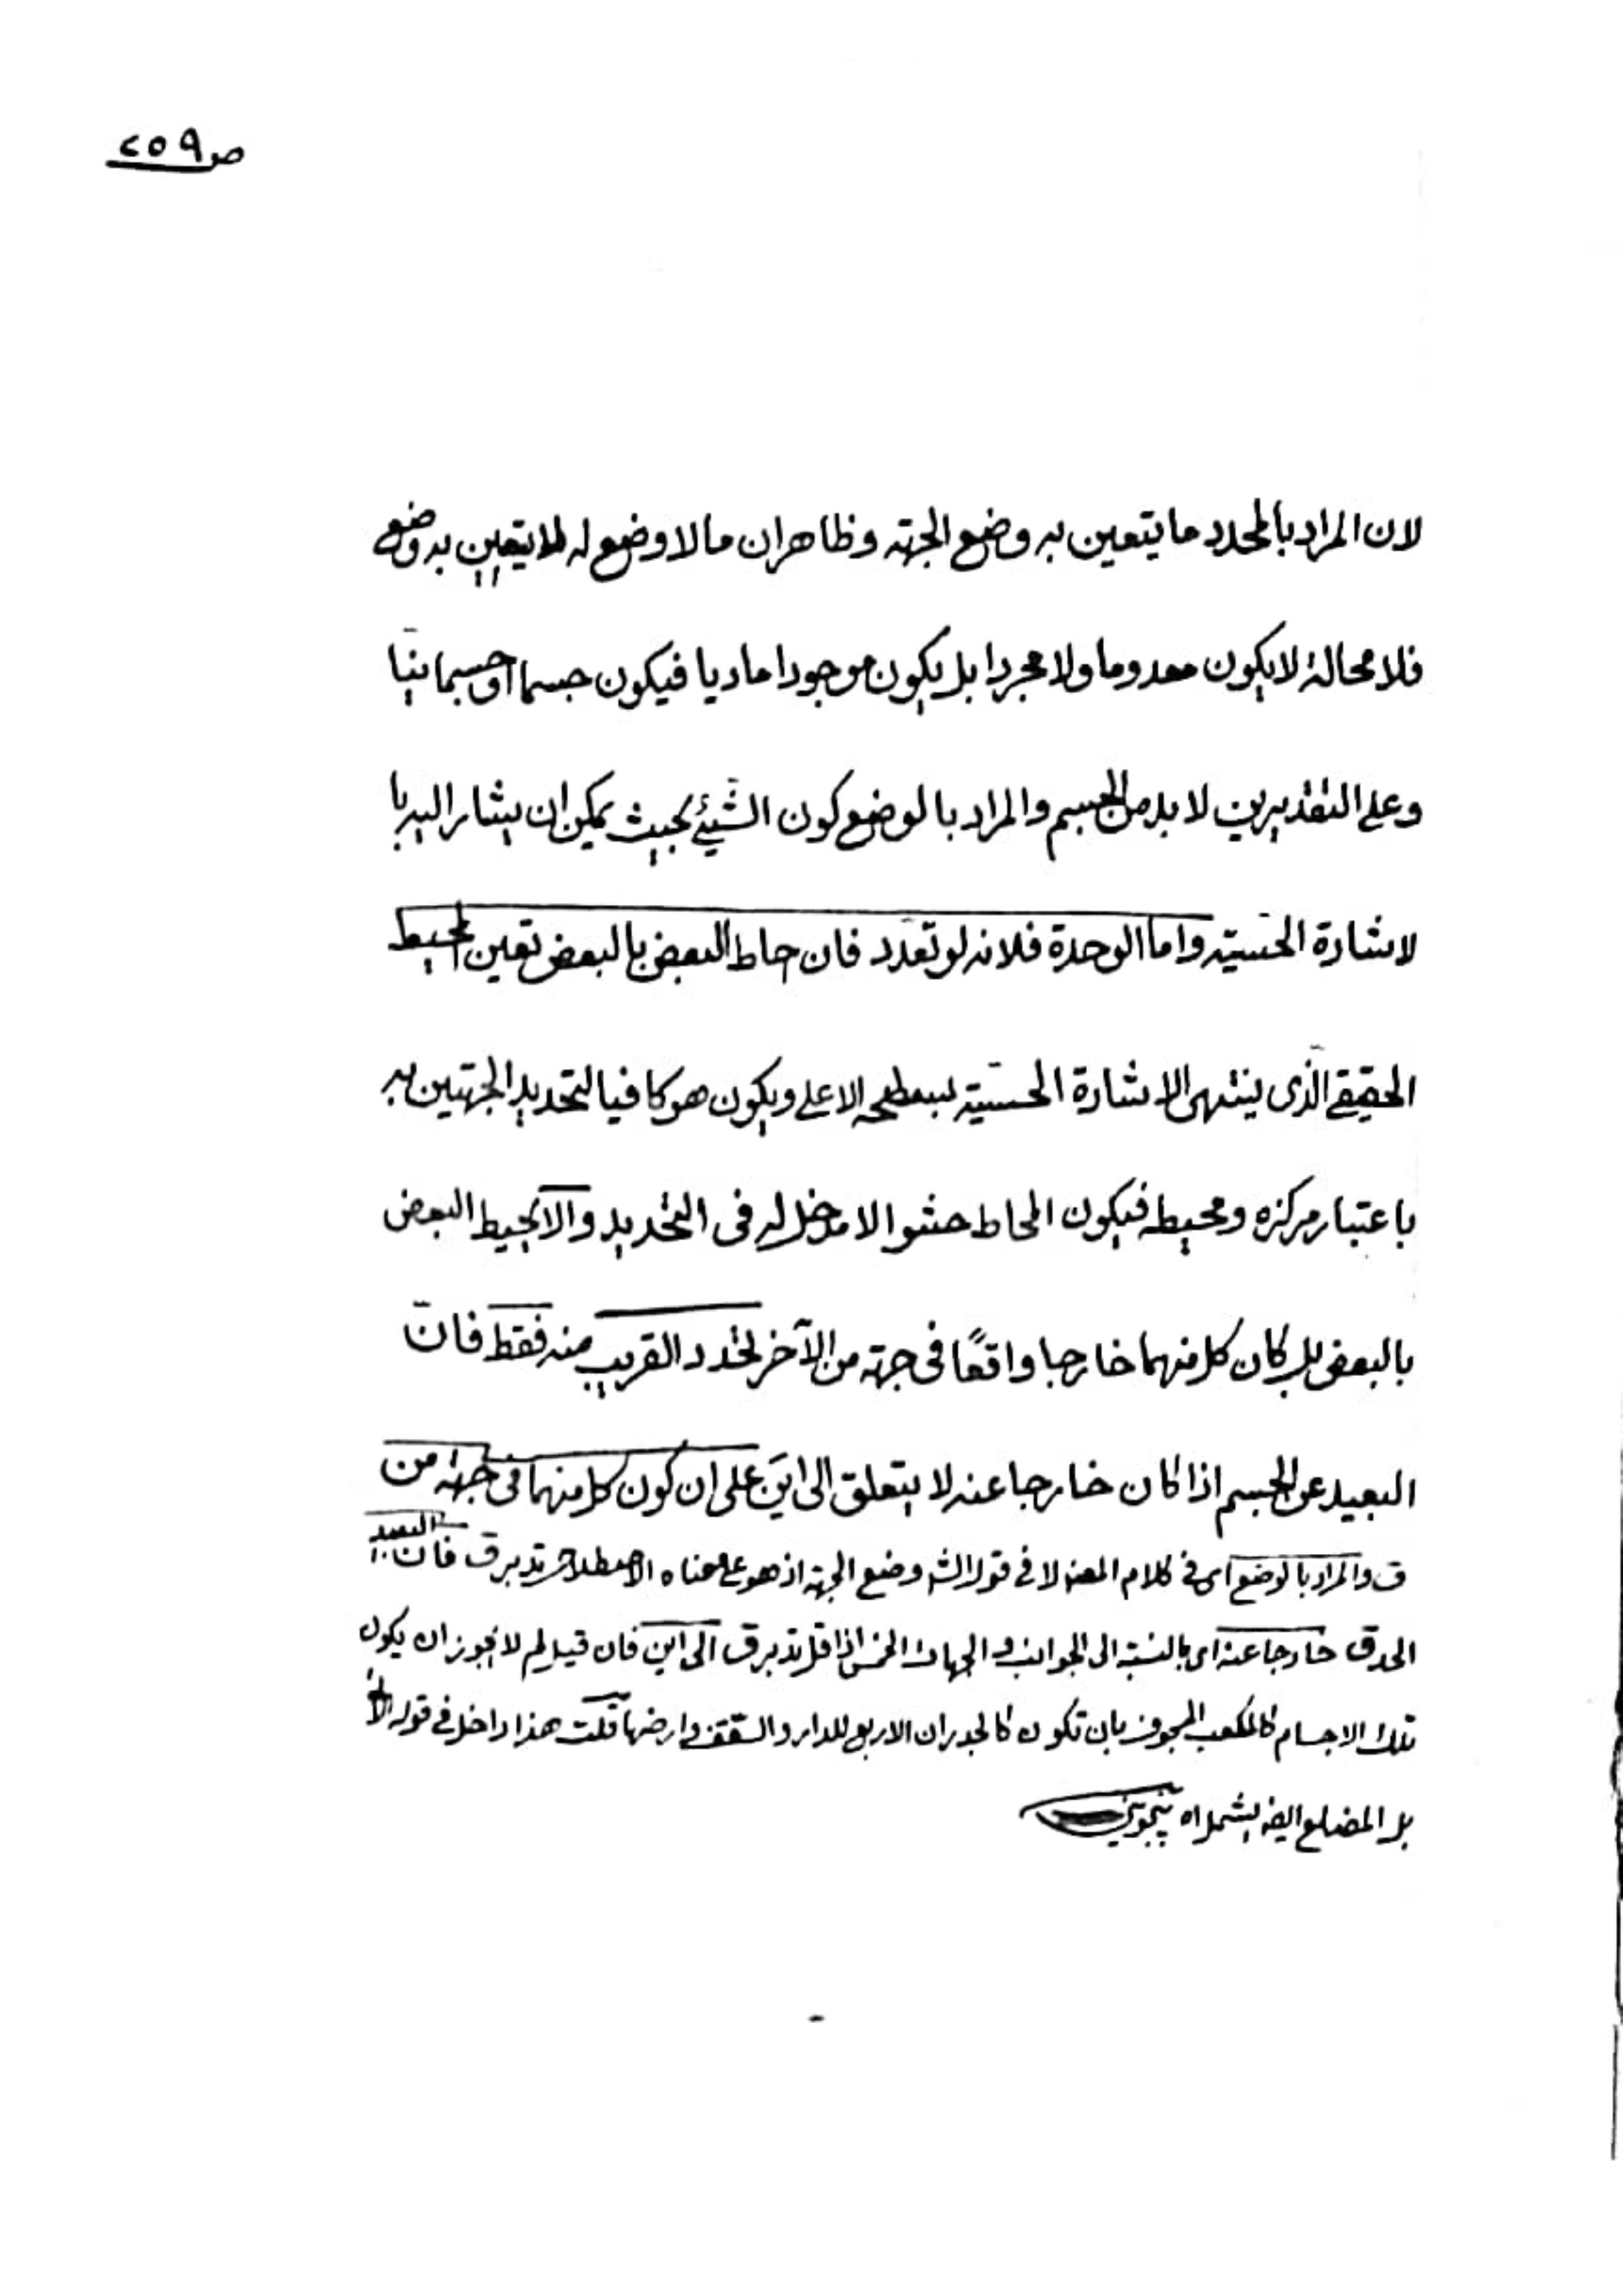 ص ٢٥٩
لان المراد بالمحدد ما يتعين به وضع الجهته وظاهران مالا وضع له لا يتعين به وضع
فلا محالة لا يكون معدوما ولا مجردا بل يكون موجودا ماديا فيكون جسما او جسمانيا
وعلى التقديرين لا بد من الجسم والمراد بالوضع كون الشيئ بحيث يمكن ان يشار اليه با
لاشارة الحسيّة واما الوحدة فلانه لو تعدّد فان حاط البعض بالبعض تعين المحيط
الحقيقي الّذى ينتهى الاشارة الحسّيّة بسطحه الاعلى ويكون هو كافيا لتحديد الجهتين به
باعتبار مركزه ومحيطه فيكون المحاط حشوا لا مدخل له فى التحديد والا يحيط البعض
بالبعض بل كان كل منهما خارجا واقعًا فى جهته من الآخر تحدد القريب منه فقط فانّ
البعيد عن الجسم اذا كان خارجا عنه لا يتعلق الى اين على ان كون كل منهما فى جهته من
ق والمراد بالوضع اى فى كلام المصنه لا فى قول الشه وضع الجهة اذ هو على معناه الاصطلاحى تدبر ق فان البعيد
الحدق خارجا عنه اى بالنسبة الى الجوانب والجهات الخمس اذا قل تدبر ق الى اين فان قيل لم لا يجوز ان يكون
تلك الاجسام كالمكعب المجوف بان تكون كالجدران الاربع للدار والسقف وارضها قلت هذا داخل فى قوله الخ
بل المضلع ايضا يشمله اه پنجوينى